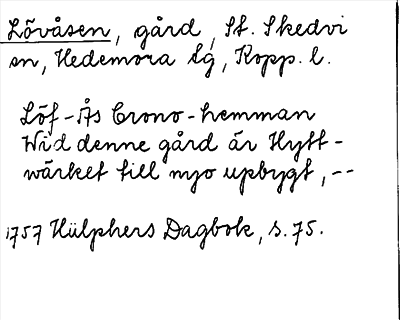 Lövåsen, gård, St. Skedvi
sn, Hedemora lg, Kopp. l.
Löf-Ås Crono-hemman
Wid denne gård är Hytt-
wärket till nyo upbygt, --
1757 Hülphers Dagbok, s. 75.